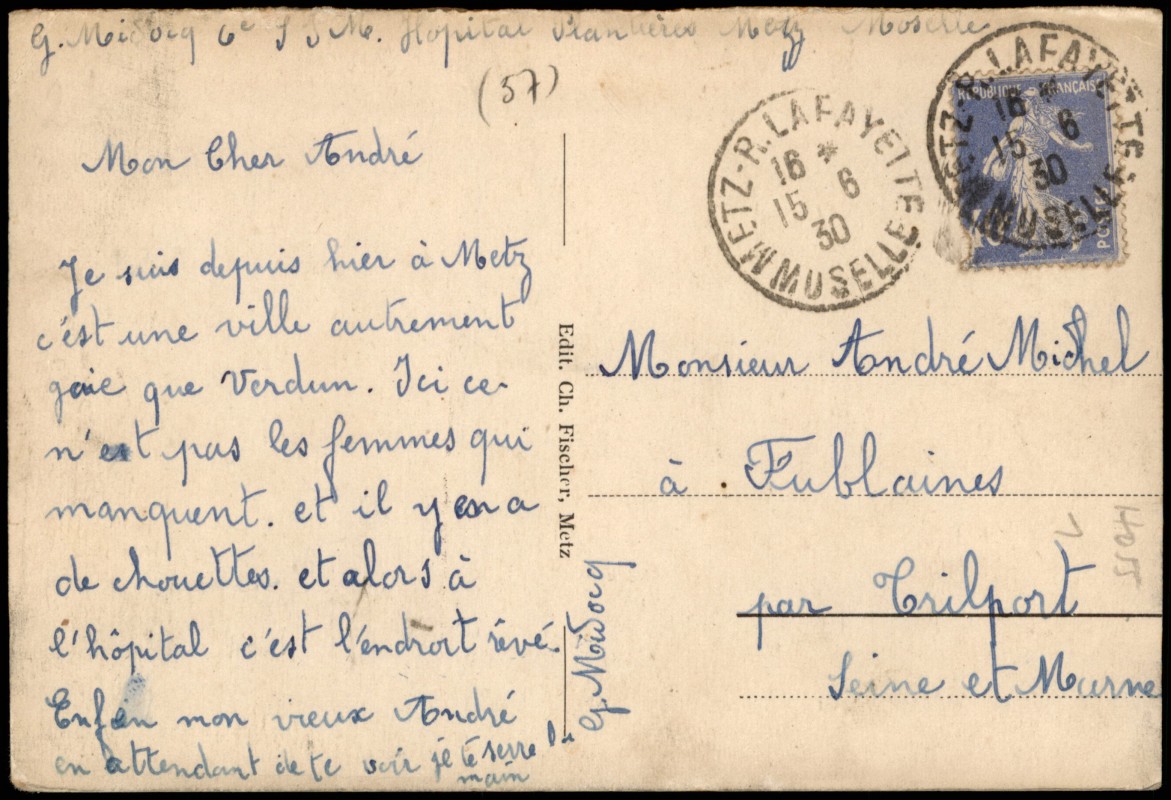 G. Midocq 6e S I M. Hôpital Plantières Metz Moselle
(57)
Mon Cher André
Je suis depuis hier à Metz
c'est une ville autrement
gaie que Verdun. Ici ce
n'est pas les femmes qui
manquent. et il y en a
de chouettes. et alors à
l'hôpital c'est l'endroit rêvé.
Enfin mon vieux André
en attendant de te voir je te serre la
main
G. Midocq
Edit. Ch. Fischer, Metz
METZ-R. LAFAYETTE
16 *
15 6
30
MOSELLE
METZ-R. LAFAYETTE
16 *
15 6
30
MOSELLE
REPUBLIQUE FRANÇAISE
POSTES
Monsieur André Michel
à Fublaines
par Trilport
Seine et Marne
1